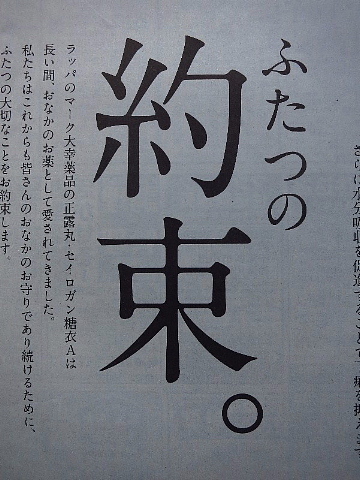 ふたつの
約束。
ラッパのマーク大幸薬品の正露丸・セイロガン糖衣Aは
長い間、おなかのお薬として愛されてきました。
私たちはこれからも皆さんのおなかのお守りであり続けるために、
ふたつの大切なことをお約束します。